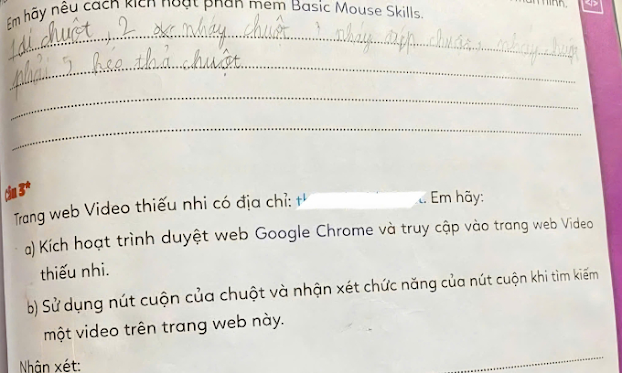 Em hãy nêu cách kích hoạt phần mềm Basic Mouse Skills.
1 di chuột, 2 nháy chuột, 3 nháy đúp chuột, nháy chuột
phải 5 kéo thả chuột
Câu 3*
Trang web Video thiếu nhi có địa chỉ: . Em hãy:
a) Kích hoạt trình duyệt web Google Chrome và truy cập vào trang web Video
thiếu nhi.
b) Sử dụng nút cuộn của chuột và nhận xét chức năng của nút cuộn khi tìm kiếm
một video trên trang web này.
Nhận xét: